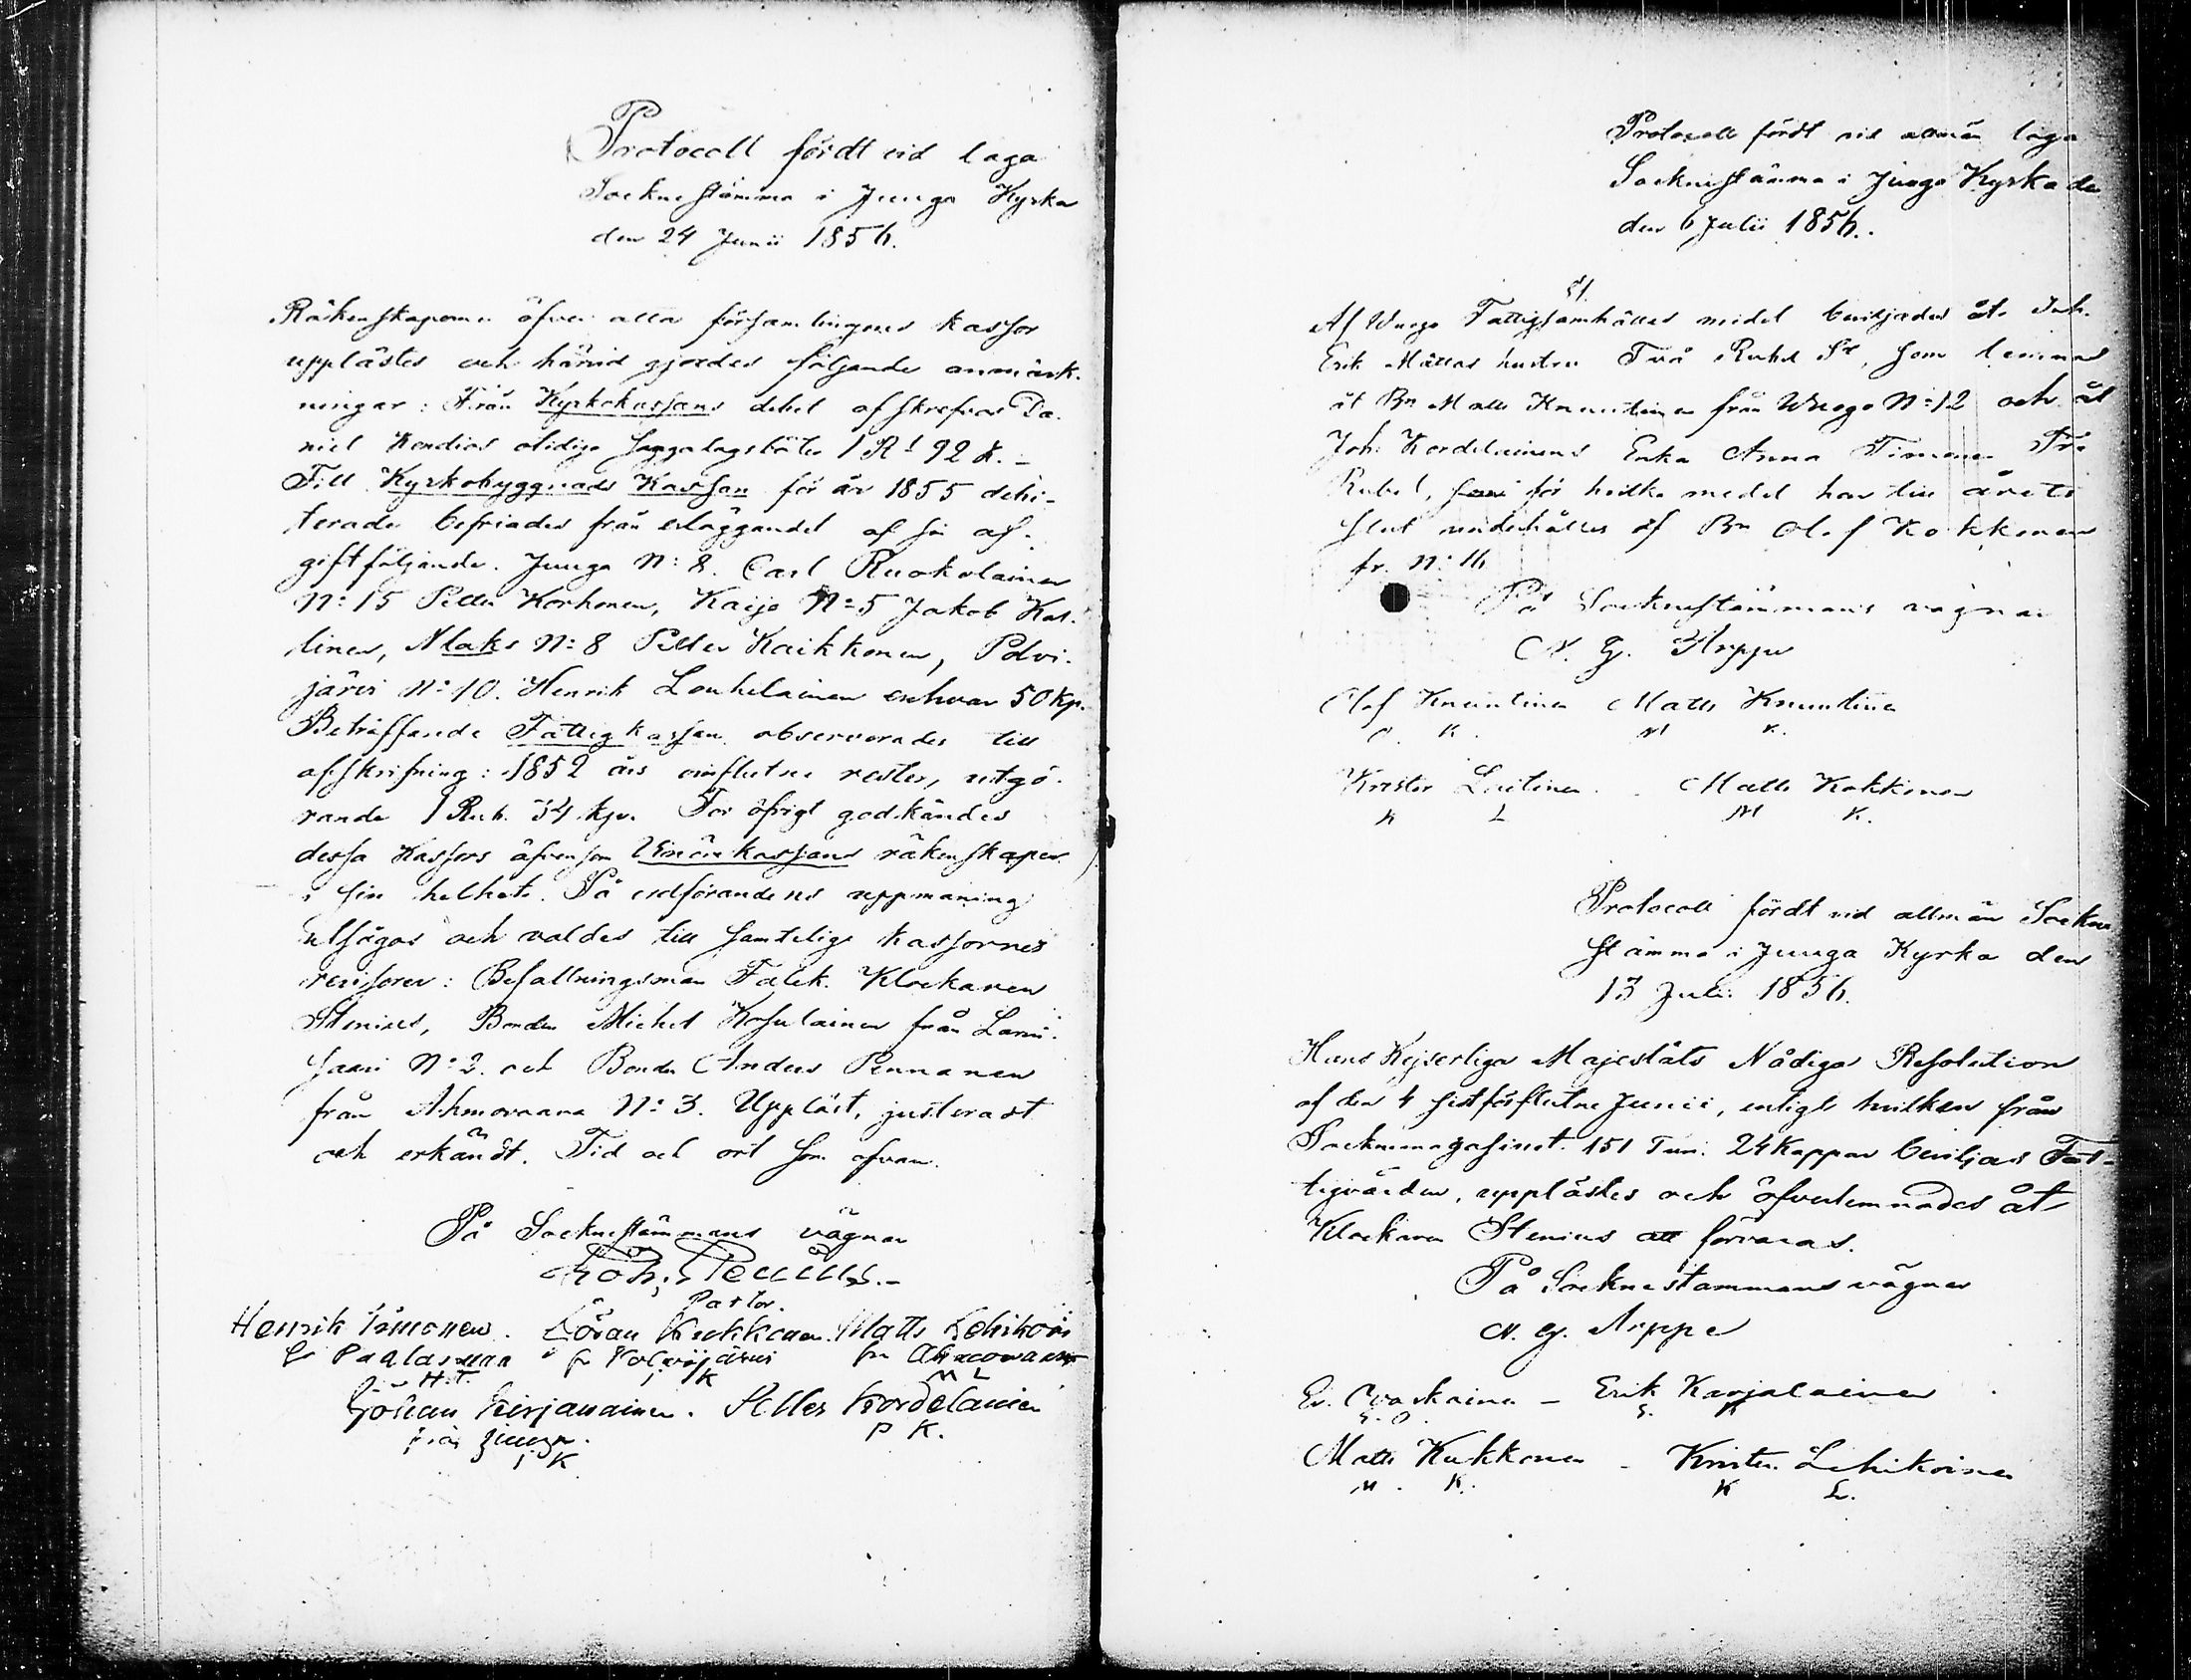 Protocoll fördt vid laga
Sockne stämma i Juuga Kyrka
den 24 Junii 1856.
Räkenskaperne öfver alla församlingens kassor
upplästes och härvid gjordes följande anmärk-
ningar: Från Kyrkokassans debet afskrefvos Da-
niel Kendias olidige laggalagsböter 1 R 92 k.-
Till Kyrkobyggnads Kassan för år 1855 debi-
terade befriades från erläggandet af sin af-
gift följande. Juuga N:8. Carl Ruokolainen
N:15 Petter Korhonen, Kaijo N:5 Jakob Kar-
linen, Alaks N:8 Petter Kaikkonen, Polvi-
järvi N:10. Henrik Louhelainen enhvar 50 kp.
Beträffande Fattigkassan observerades till
afskrifning: 1852 års oinflutne rester, utgö-
rande 1 Rub. 34 kp. För öfrigt godkändes
dessa Kassors äfvensom Vinärkassans räkenskaper
i sin helhet. På ordförandens uppmaning
utsågos och valdes till samtelige kassornes
revisorer: Befallningsman Falck. Klockaren
Stenius, Bonden Michel Kosulainen från Larin-
saari N:2. och Bonden Anders Pennanen
från Ahmovaara N:3. Uppläst, justeradt
och erkändt. Tid och ort som ofvan.
På Socknestämmans vägnar
Joh. Stenius.-
Pastor.
Henrik Timonen. Johan Kukkonen. Matts Lehikoin
fr Paalasmaa fr Polvijärvi fr Ahmowaara
H.T. J K M L
Johan Kirjanainen. Petter Kordelainen
från Juuga. P K.
J K
Protocoll fördt vid allmän laga
Socknestämma i Juuga Kyrka den
den 6 Julii 1856.
Af Wuogo Fattigsamhälles medel beviljades åt Inh.
Erik Mällas hustru Två Rubel Sr, som lemnas
åt Bn Matts Knuutinen från Wuogo N:12 och åt
Joh: Kordelainens Enka Anna Timonen Tre
Rubel, för hvilka medel hon till årets
slut underhålles af Bn Olof Kokkonen
fr. N:16
På Socknestämmans vägnar
N. G. Arppe
Olof Knuutinen Matts Knuutinen
O. K. M K.
Krister Luitinen Matts Kokkonen
K L M K.
Protocoll fördt vid allmän Sockne
stämma i Juuga Kyrka den
13 Julii 1856.
Hans Kejserliga Majestäts Nådiga Resolution
af den 4 sistförflutne Junii, enligt hvilken från
Sockenmagasinet 151 Tun. 24 Kappar beviljas Fat-
tigvården, upplästes och öfverlemnades åt
Klockaren Stenius att förvaras.
På Socknestämmans vägnar
N. G. Arppe
Er. Ovaskainen - Erik Karjalainen
E. O. E. K
Matts Kukkonen - Krister Lehikoinen
M. K. K L.